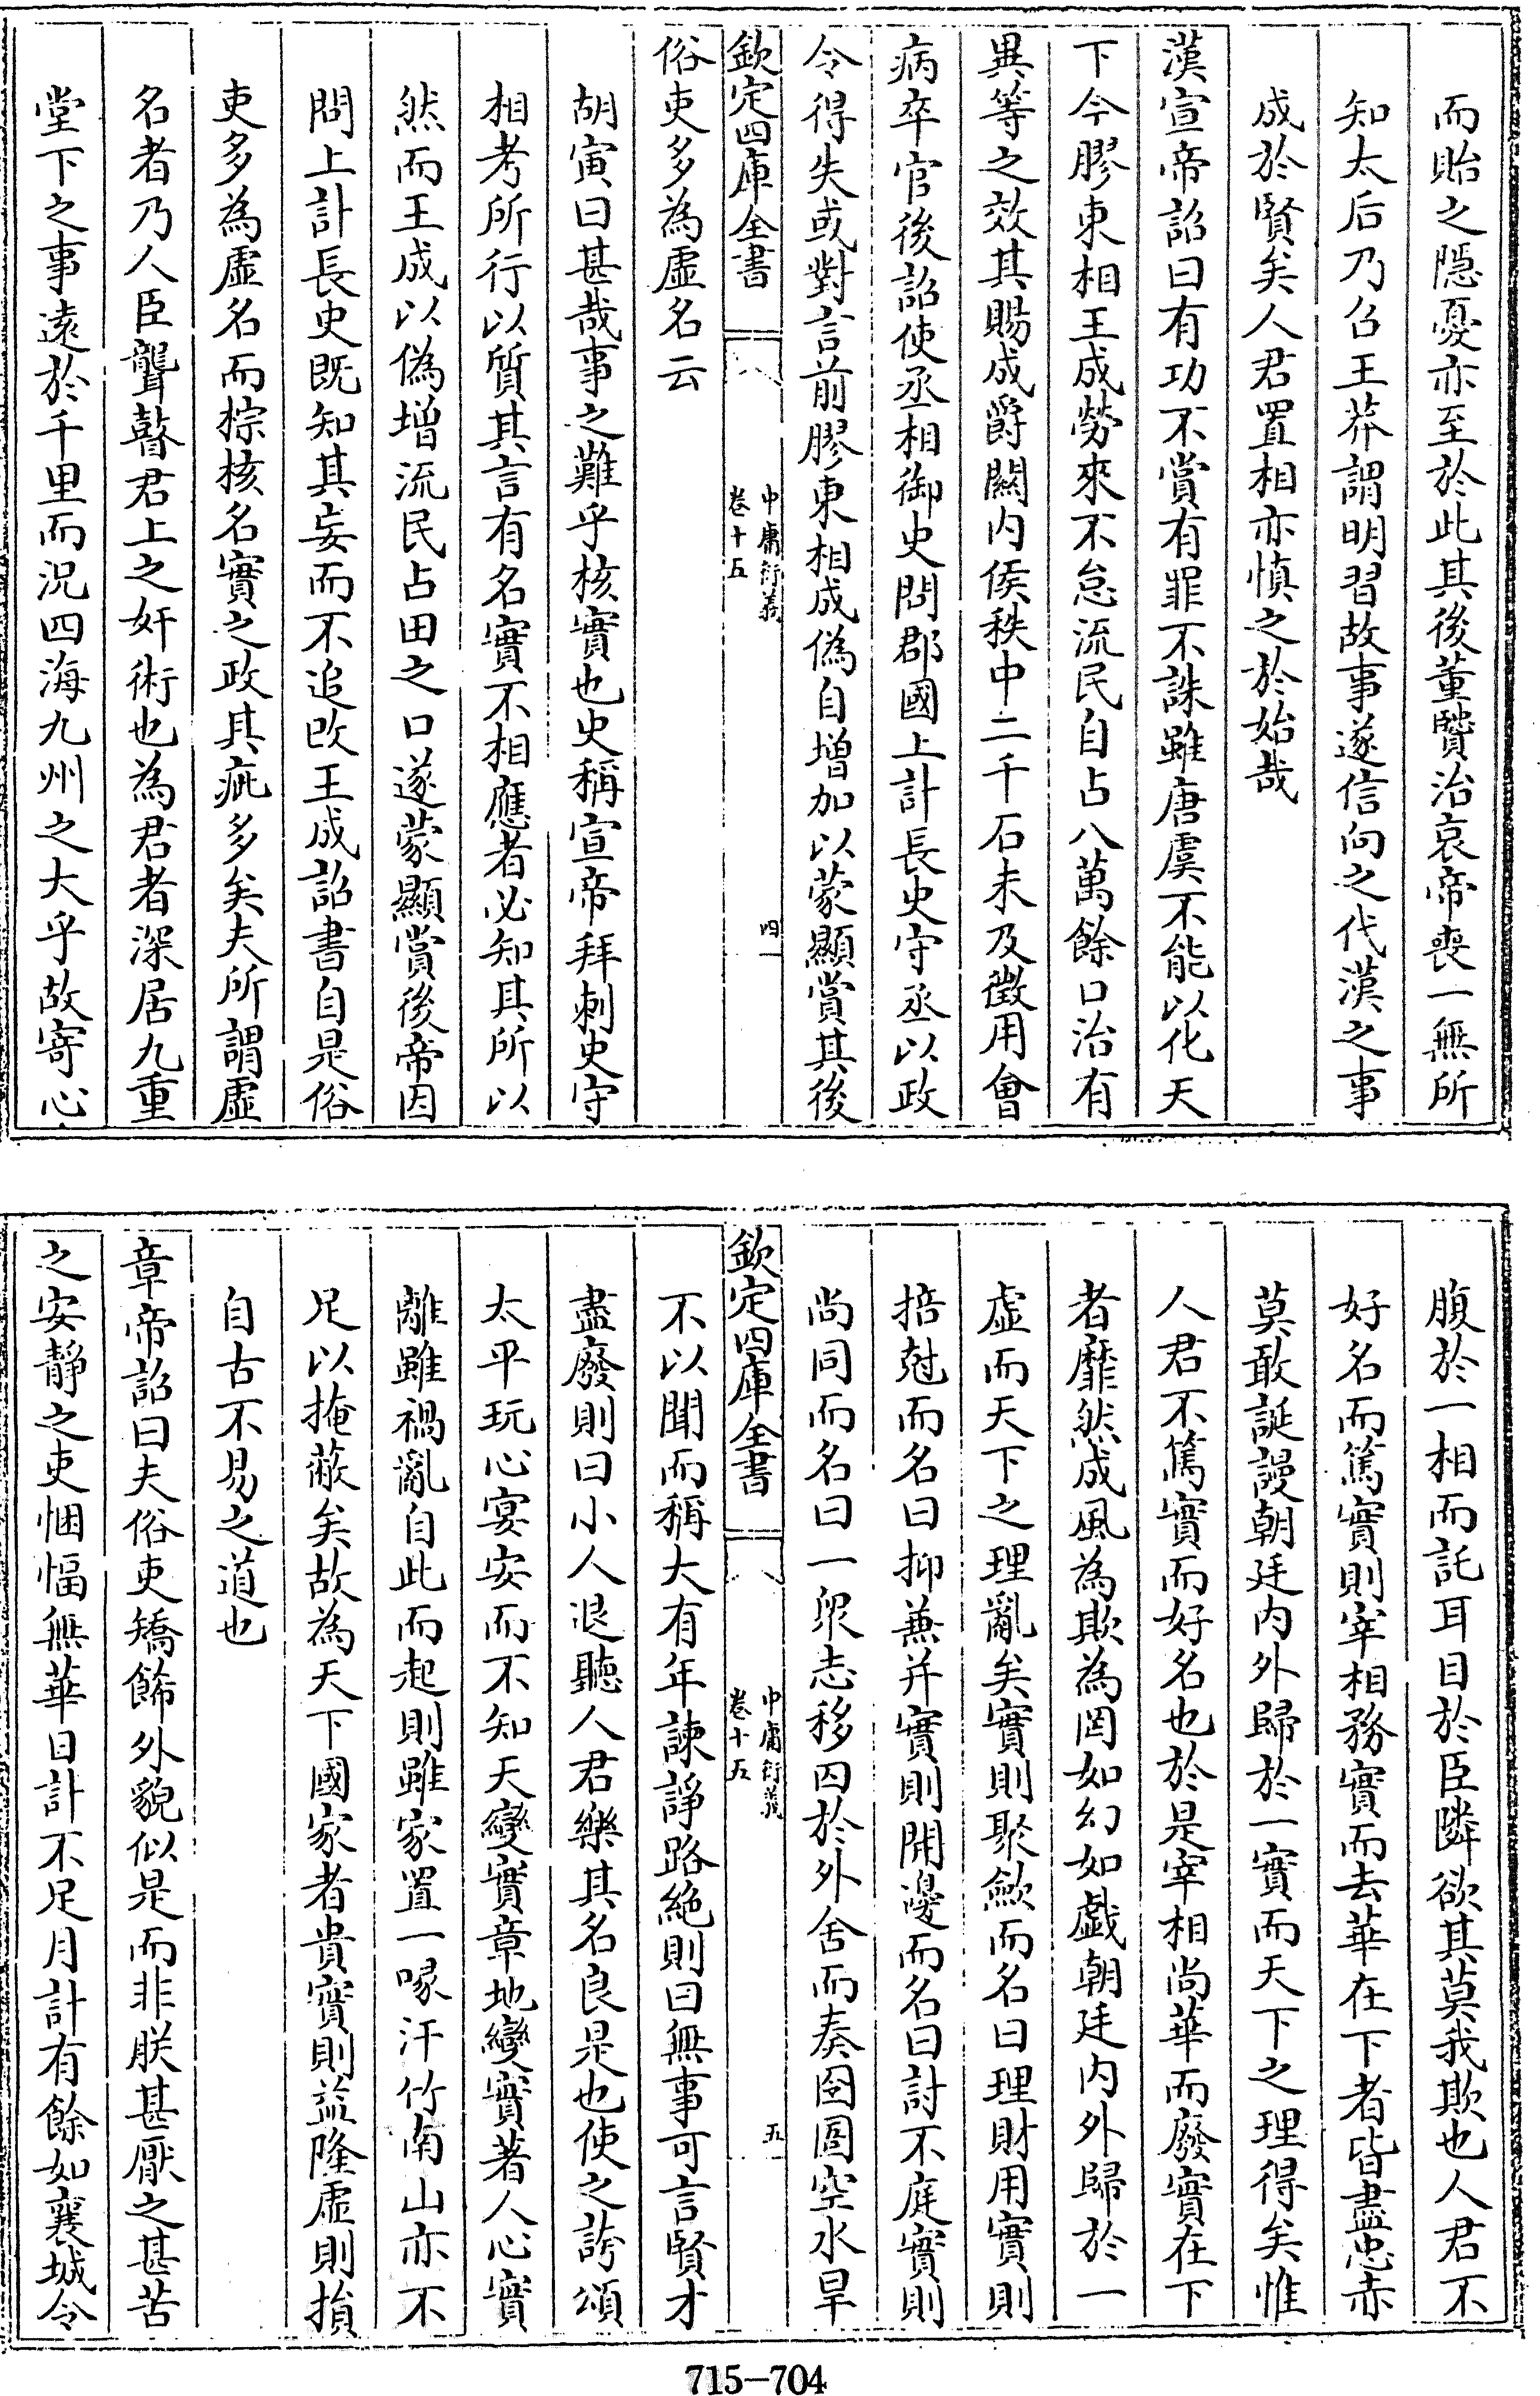 而貽之隱憂亦至於此其後董賢治哀帝喪一無所
知太后乃召王莽謂明習故事遂信向之代漢之事
成於賢矣人君置相亦慎之於始哉
漢宣帝詔曰有功不賞有罪不誅雖唐虞不能以化天
下今膠東相王成勞來不怠流民自占八萬餘口治有
異等之效其賜成爵關内侯秩中二千石未及徵用會
病卒官後詔使丞相御史問郡國上計長史守丞以政
令得失或對言前膠東相成偽自增加以蒙顯賞其後
欽定四庫全書
中庸衍義
卷十五
四
俗吏多為虛名云
胡寅曰甚哉事之難乎核實也史稱宣帝拜刺史守
相考所行以質其言有名實不相應者必知其所以
然而王成以偽增流民占田之口遂蒙顯賞後帝因
問上計長史既知其妄而不追改王成詔書自是俗
吏多為虛名而棕核名實之政其疵多矣夫所謂虛
名者乃人臣聾瞽君上之奸術也為君者深居九重
堂下之事遠於千里而況四海九州之大乎故寄心
腹於一相而託耳目於臣隣欲其莫我欺也人君不
好名而篤實則宰相務實而去華在下者皆盡忠赤
莫敢誕謾朝廷内外歸於一實而天下之理得矣惟
人君不篤實而好名也於是宰相尚華而廢實在下
者靡然成風為欺為罔如幻如戲朝廷内外歸於一
虛而天下之理亂矣實則聚斂而名曰理財用實則
掊尅而名曰抑兼并實則開邊而名曰討不庭實則
尚同而名曰一衆志移囚於外舍而奏囹圄空水旱
欽定四庫全書
中庸衍義
卷十五
五
不以聞而稱大有年諫諍路絶則曰無事可言賢才
盡廢則曰小人退聽人君樂其名良是也使之誇頌
太平玩心宴安而不知天變實章地變實著人心實
離雖禍亂自此而起則雖家置一喙汗竹南山亦不
足以掩蔽矣故為天下國家者貴實則益隆虛則損
自古不易之道也
章帝詔曰夫俗吏矯飾外貌似是而非朕甚厭之甚苦
之安靜之吏悃愊無華日計不足月計有餘如襄城令
715-704